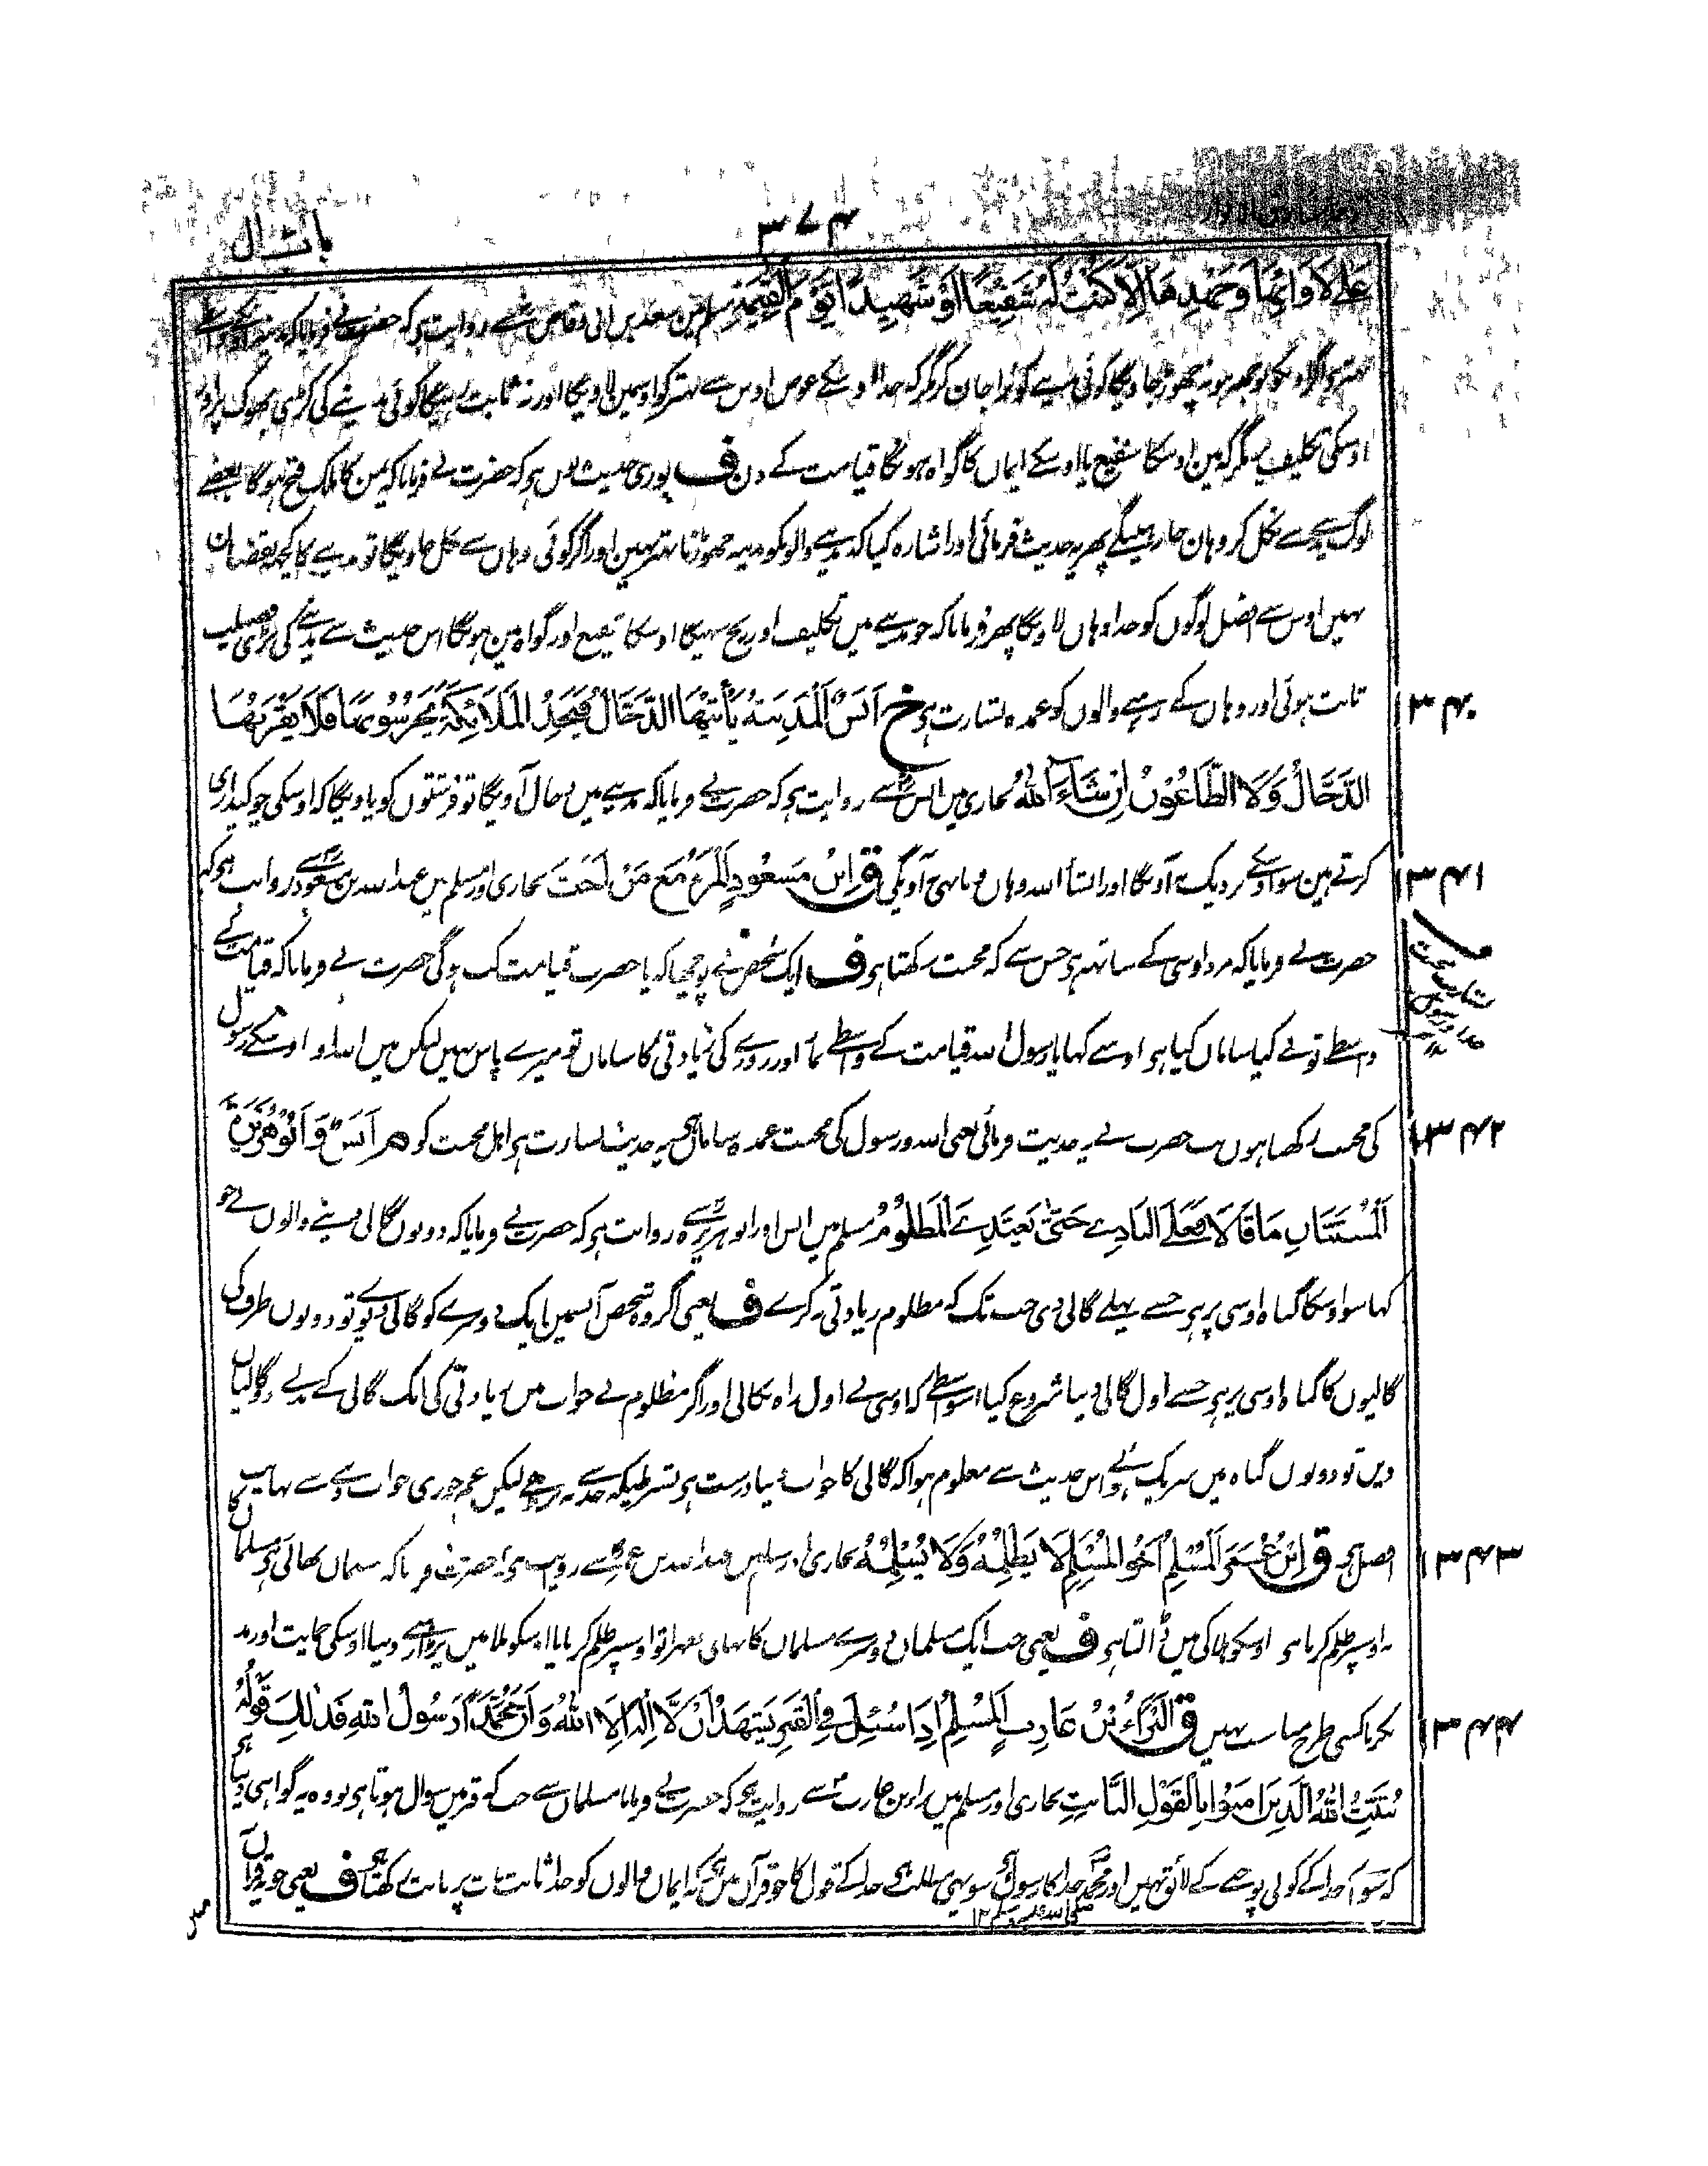 ۳۷۴
باب ال
عَلٰى لَاْوَائِهَا وَجَهْدِهَا اِلَّا كُنْتُ لَهٗ شَفِيْعًا اَوْ شَهِيْدًا يَوْمَ الْقِيٰمَةِ مسلم مین سعد بن ابی وقاص سے روایت ہی کہ حضرت نے فرمایا کہ مدینہ اونکے واسطے
بہتر ہی اگر اونکو بوجھہ ہو نہ چھوڑ جاویگا کوئی مدینے کو برا جان کر مگر کہ خدا اوسکے عوض اوس سے بہتر کو اوسمین لاویگا اور نہ ثابت رہیگا کوئی مدینے کی کڑی بھوک پر اور
اوسکی تکلیف پر مگر کہ مین اوسکا شفیع یا اوسکے ایمان کا گواہ ہونگا قیامت کے دن ف پوری حدیث یوں ہی کہ حضرت نے فرمایا کہ یمن کا ملک فتح ہوگا بعضے
لوگ مدینے سے نکل کر وہان جا رہینگے پھر یہ حدیث فرمائی اور اشارہ کیا کہ مدینے والونکو مدینہ چھوڑنا بہتر نہین اور اگر کوئی وہاں سے نکل جاویگا تو مدینے کا کچھ نقصان
نہیں اوس سے افضل لوگوں کو خدا وہاں لاویگا پھر فرمایا کہ جو مدینے میں تکلیف اور رنج سہیگا اوسکا شفیع اور گواہ مین ہونگا اس حدیث سے مدینے کی بڑی فضیلت
ثابت ہوئی اور وہاں کے رہنے والوں کو عمدہ بشارت ہی خ اَنَسٌ اَلْمَدِيْنَةُ يَأْتِيْهَا الدَّجَّالُ فَيَجِدُ الْمَلَائِكَةَ يَحْرُسُوْنَهَا فَلَا يَقْرَبُهَا
۱۳۴۰
الدَّجَّالُ وَلَا الطَّاعُوْنُ اِنْ شَاءَ اللّٰهُ بخاری میں انس سے روایت ہی کہ حضرت نے فرمایا کہ مدینے میں دجال آویگا تو فرشتوں کو پاویگا کہ اوسکی چوکیداری
کرتے ہین سو اوسکے نزدیک نہ آویگا اور انشاء اللہ وہاں وبا بھی نہ آویگی ق اِبْنُ مَسْعُوْدٍ اَلْمَرْءُ مَعَ مَنْ اَحَبَّ بخاری اور مسلم میں عبد اللہ بن مسعود سے روایت ہی کہ
۱۳۴۱
حضرت نے فرمایا کہ مرد اوسی کے ساتھہ ہی جس سے کہ محبت رکھتا ہی ف ایک شخص نے پوچھا کہ یا حضرت قیامت کب ہوگی حضرت نے فرمایا کہ قیامت کے
واسطے تو نے کیا سامان کیا ہی اوسنے کہا یا رسول اللہ قیامت کے واسطے نماز اور روزے کی زیادتی کا سامان تو میرے پاس نہیں لیکن میں اللہ اور اوسکے رسول
کی محبت رکھتا ہوں تب حضرت نے یہ حدیث فرمائی یعنی اللہ ورسول کی محبت عمدہ سامان ہی یہ حدیث بشارت ہی اہل محبت کو م اَنَسٌ وَاَبُوْهُرَيْرَةَ
۱۳۴۲
اَلْمُسْتَبَّانِ مَا قَالَا فَعَلَى الْبَادِئِ حَتّٰى يَعْتَدِيَ الْمَظْلُوْمُ مسلم میں انس اور ابوہریرہ سے روایت ہی کہ حضرت نے فرمایا کہ دونوں گالی دینے والوں نے جو
کہا سو اوسکا گناہ اوسی پر ہی جسنے پہلے گالی دی جب تک کہ مظلوم زیادتی نہ کرے ف یعنی اگر دو شخص آپسمیں ایک دوسرے کو گالی دیوے تو دونوں طرف کی
گالیوں کا گناہ اوسی پر ہی جسنے اول گالی دینا شروع کیا اسواسطے کہ اوسی نے اول راہ نکالی اور اگر مظلوم نے جواب میں زیادتی کی ایک گالی کے بدلے دو گالیاں
دیں تو دونوں گناہ میں شریک ہوئے اس حدیث سے معلوم ہوا کہ گالی کا جواب دینا درست ہی بشرطیکہ حد سے نہ بڑھے لیکن غم خوری جواب دینے سے نہایت
افضل ہی ق اِبْنُ عُمَرَ اَلْمُسْلِمُ اَخُو الْمُسْلِمِ لَا يَظْلِمُهٗ وَلَا يُسْلِمُهٗ بخاری اور مسلم میں عبد اللہ بن عمر سے روایت ہی کہ حضرت نے فرمایا کہ مسلمان بھائی ہی مسلمان کا
۱۳۴۳
نہ اوسپر ظلم کرتا ہی نہ اوسکو ہلاکی میں ڈالتا ہی ف یعنی جب ایک مسلمان دوسرے مسلمان کا بھائی ٹھہرا تو اوسپر ظلم کرنا یا اوسکو بلا میں پڑا رہنے دینا اوسکی حمایت اور مدد
نکرنا کسی طرح مناسب نہیں ق اَلْبَرَاءُ بْنُ عَازِبٍ اَلْمُسْلِمُ اِذَا سُئِلَ فِي الْقَبْرِ يَشْهَدُ اَنْ لَّا اِلٰهَ اِلَّا اللّٰهُ وَاَنَّ مُحَمَّدًا رَسُوْلُ اللّٰهِ فَذٰلِكَ قَوْلُهٗ
۱۳۴۴
يُثَبِّتُ اللّٰهُ الَّذِيْنَ اٰمَنُوْا بِالْقَوْلِ الثَّابِتِ بخاری اور مسلم میں براء بن عازب سے روایت ہی کہ حضرت نے فرمایا مسلمان سے جب کہ قبر میں سوال ہوتا ہی تو وہ یہ گواہی دیتا ہی
کہ سوائے خدا کے کوئی پوجنے کے لائق نہیں اور محمد خدا کا رسول ہی سو یہی مطلب ہی خدا کے قول کا جو قرآن میں ہی کہ ایمان والوں کو خدا ثابت بات پر ثابت رکھتا ہی ف یعنی جو قرآن
صلی اللہ علیہ وسلم ۱۲